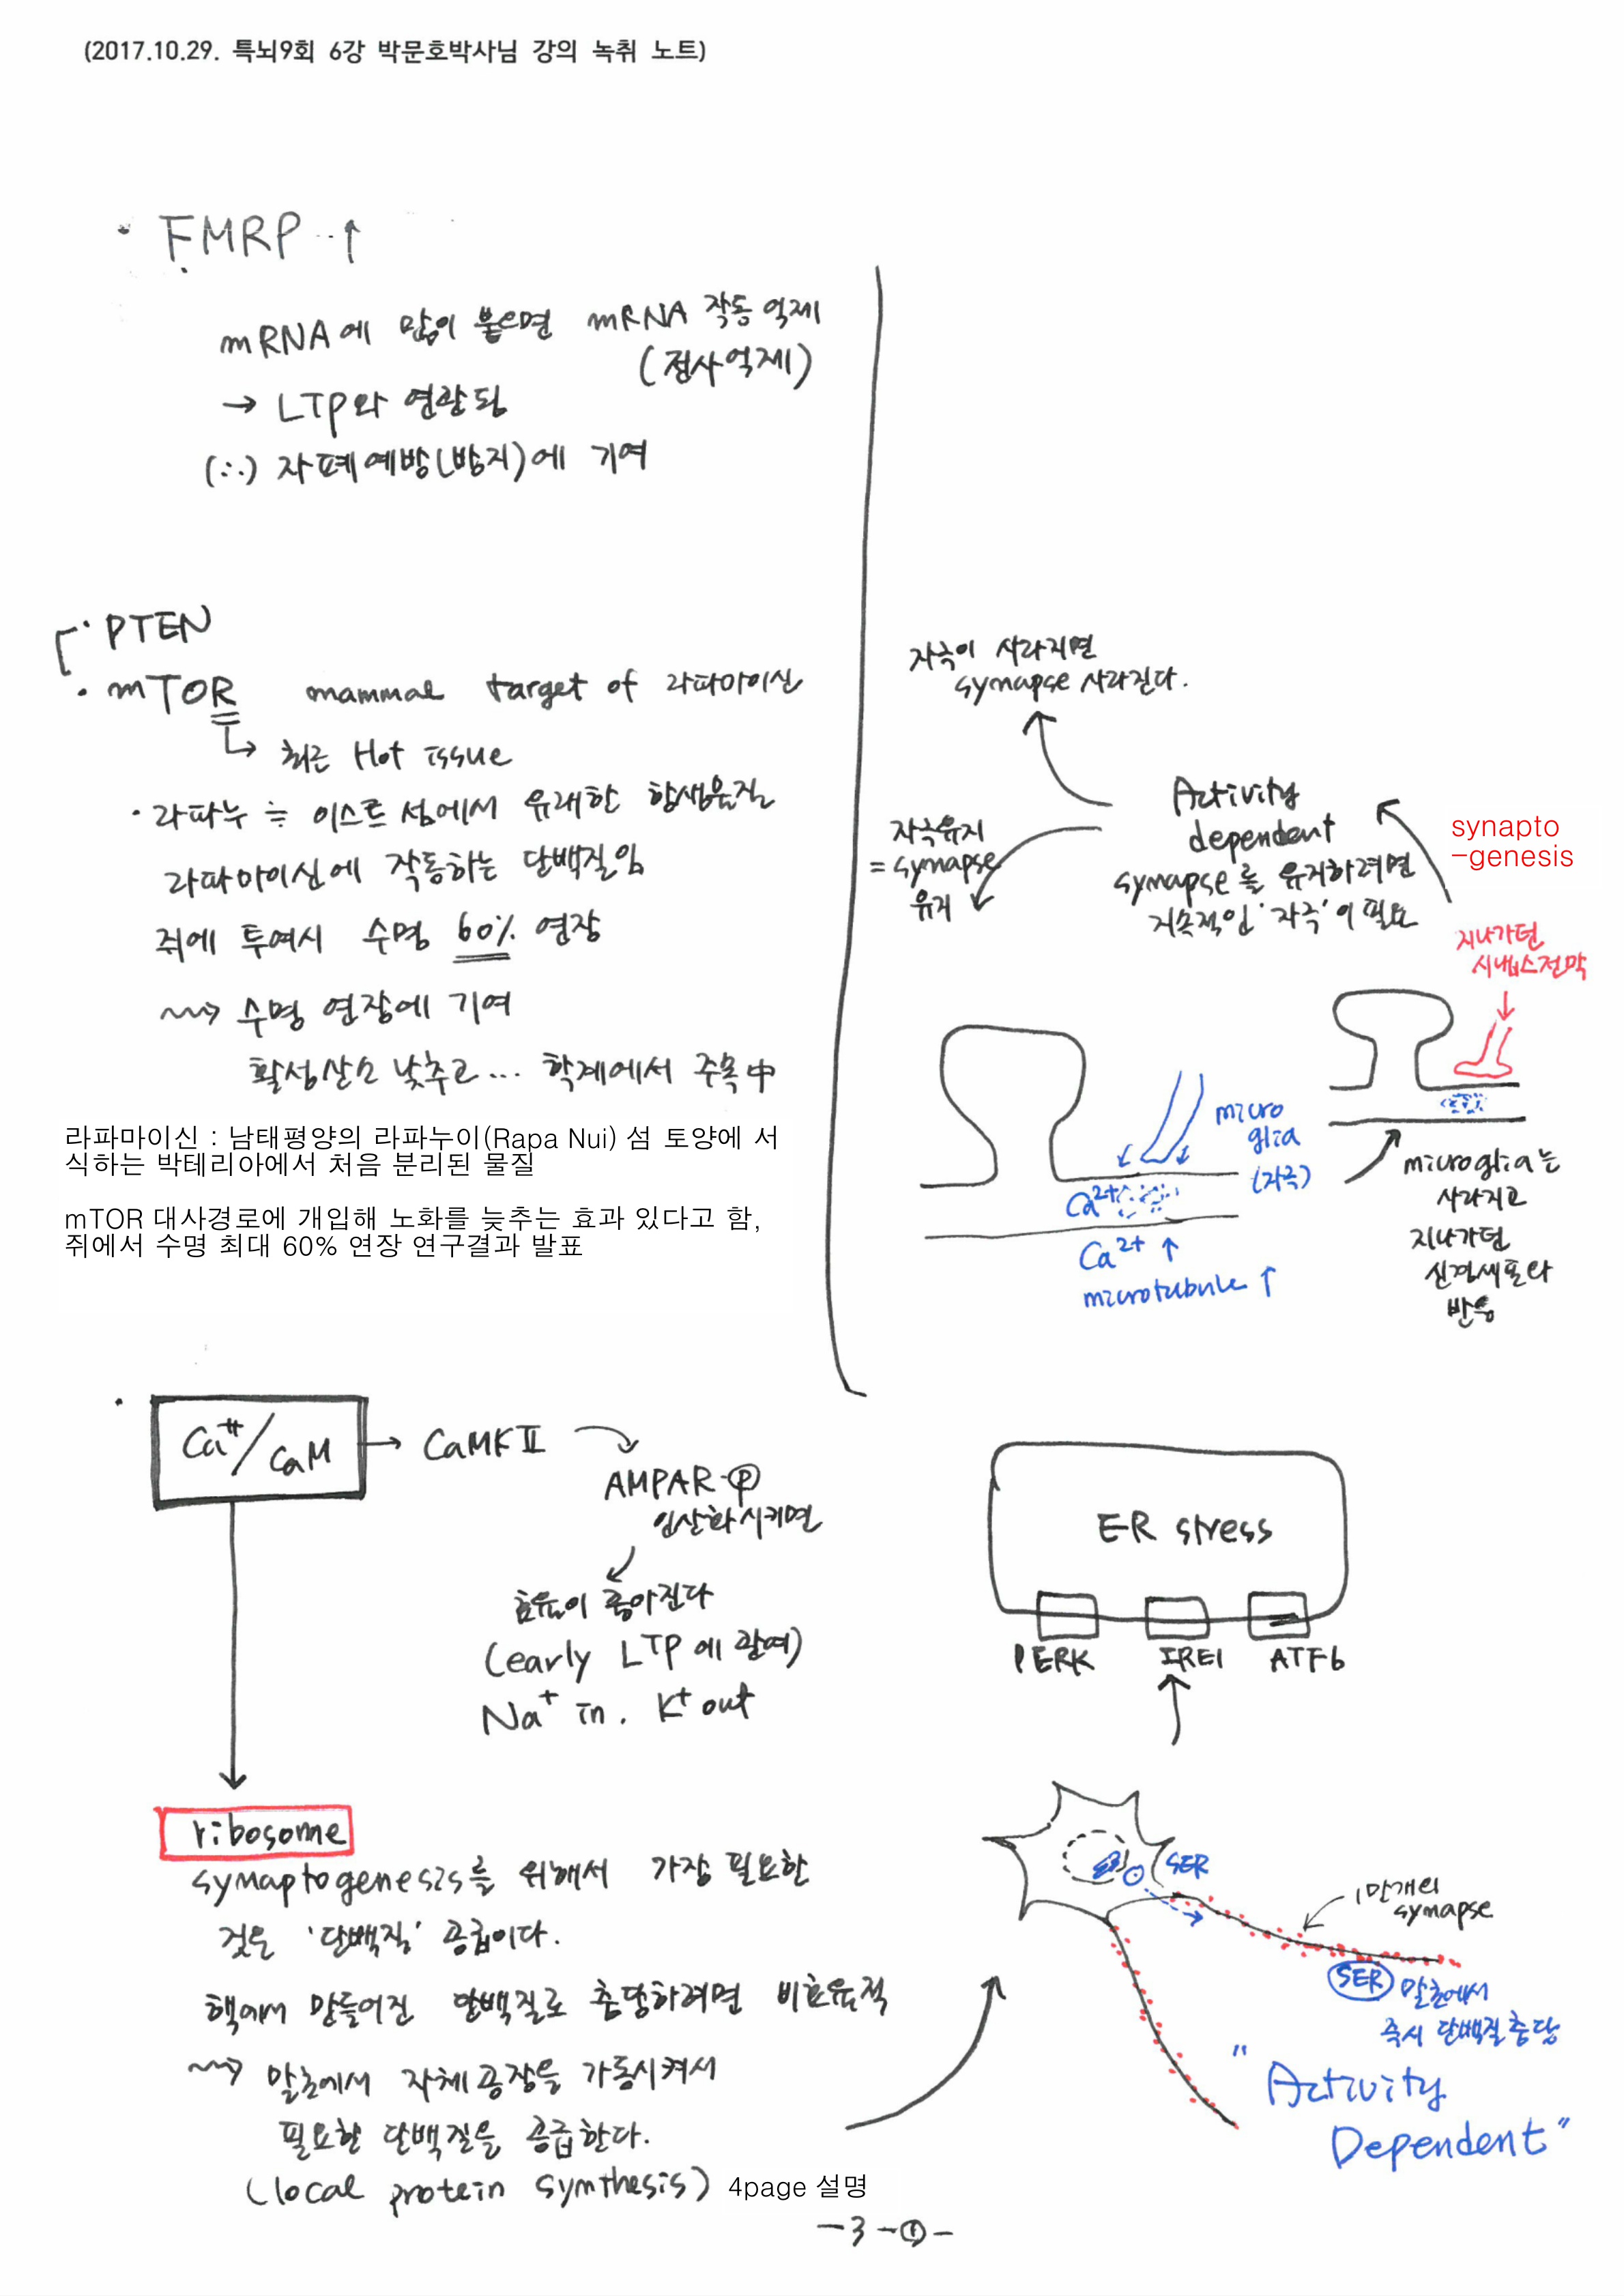 (2017.10.29. 특뇌9회 6강 박문호박사님 강의 녹취 노트)
· FMRP ↑
mRNA에 많이 붙으면 mRNA 작동 억제
(전사억제)
→ LTP와 연관됨
(∴) 자폐예방(방지)에 기여
· PTEN
· mTOR mammal target of 라파마이신
↳ 최근 Hot issue
· 라파누 ≒ 이스트 섬에서 유래한 항생물질
라파마이신에 작동하는 단백질임
쥐에 투여시 수명 60% 연장
⇝ 수명 연장에 기여
활성산소 낮추고... 학계에서 주목中
라파마이신 : 남태평양의 라파누이(Rapa Nui) 섬 토양에 서
식하는 박테리아에서 처음 분리된 물질
mTOR 대사경로에 개입해 노화를 늦추는 효과 있다고 함,
쥐에서 수명 최대 60% 연장 연구결과 발표
자극이 사라지면
synapse 사라진다.
자극유지
= synapse
유지
Activity
dependent
synapse를 유지하려면
지속적인 '자극'이 필요
synapto
-genesis
지나가던
시냅스전막
micro
glia
(자극)
Ca2+
Ca2+ ↑
microtubule ↑
microglia는
사라지고
지나가던
신경세포와
반응
· Ca++/CaM → CaMKⅡ
AMPAR-Ⓟ
인산화시키면
효율이 좋아진다
(early LTP에 관여)
Na+ in. K+ out
ER stress
PERK IRE1 ATF6
ribosome
synaptogenesis를 위해서 가장 필요한
것은 '단백질' 공급이다.
핵에서 만들어진 단백질로 충당하려면 비효율적
⇝ 말초에서 자체공장을 가동시켜서
필요한 단백질을 공급한다.
(local protein synthesis) 4page 설명
SER
1만개의
synapse
SER 말초에서
즉시 단백질 충당
"Activity
Dependent"
-3-①-